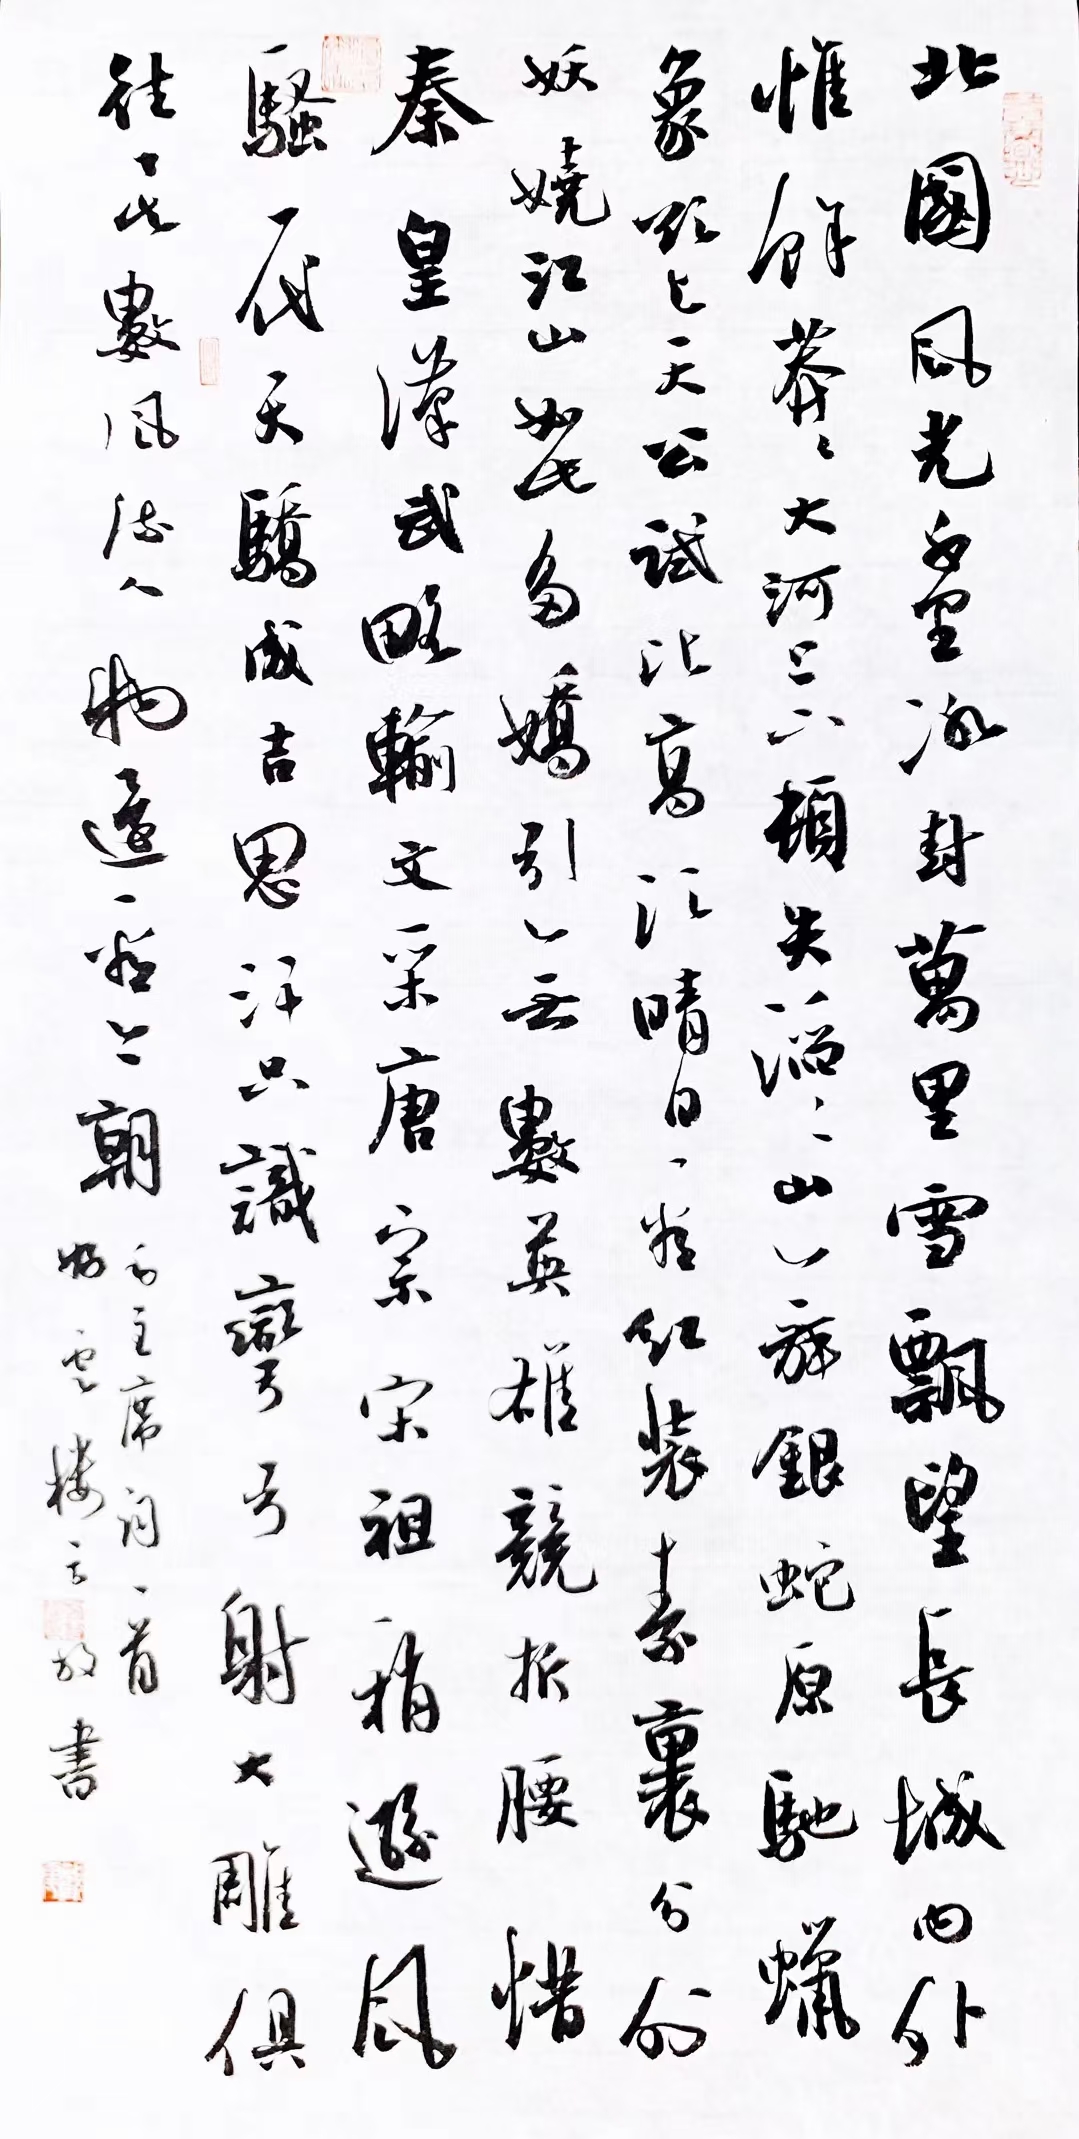 北國風光千里冰封萬里雪飄望長城內外
惟餘莽〻大河上下頓失滔〻山舞銀蛇原馳蠟
象欲與天公試比高須晴日看紅裝素裹分外
妖嬈江山如此多嬌引無數英雄競折腰惜
秦皇漢武略輸文采唐宗宋祖稍遜風
騷一代天驕成吉思汗只識彎弓射大雕俱
往矣數風流人物還看今朝
毛主席詞一首
雲樓書